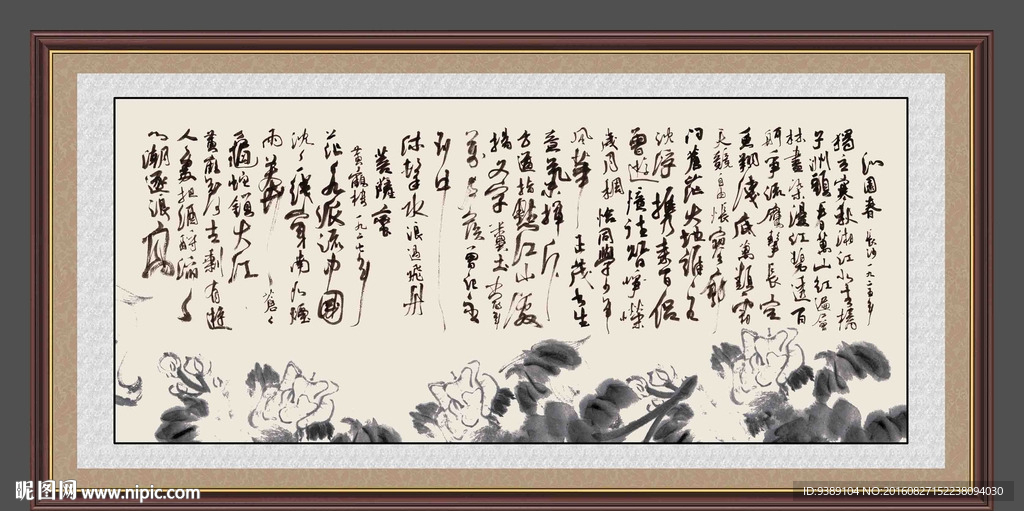 沁園春 长沙一九二五年
獨立寒秋湘江北去橘
子洲頭看萬山红遍層
林盡染漫江碧透百
舸争流鷹擊長空
魚翔淺底萬類霜
天競自由悵寥廓
问蒼茫大地誰主
沈浮 携来百侣
曾遊憶往昔峥嶸
歲月稠恰同學少年
風華正茂書生
意氣揮斥
方遒指點江山激
揚文字糞土當年
萬户侯曾记否
到中
流擊水浪遏飛舟
菩薩蠻
黄鶴楼一九二七年
茫茫九派流中國
沈沈一线穿南北煙
雨莽蒼蒼
龜蛇鎖大江
黄鶴知何去剩有遊
人處把酒酹滔滔
心潮逐浪高
昵图网 www.nipic.com
ID:9389104 NO:20160827152238094030